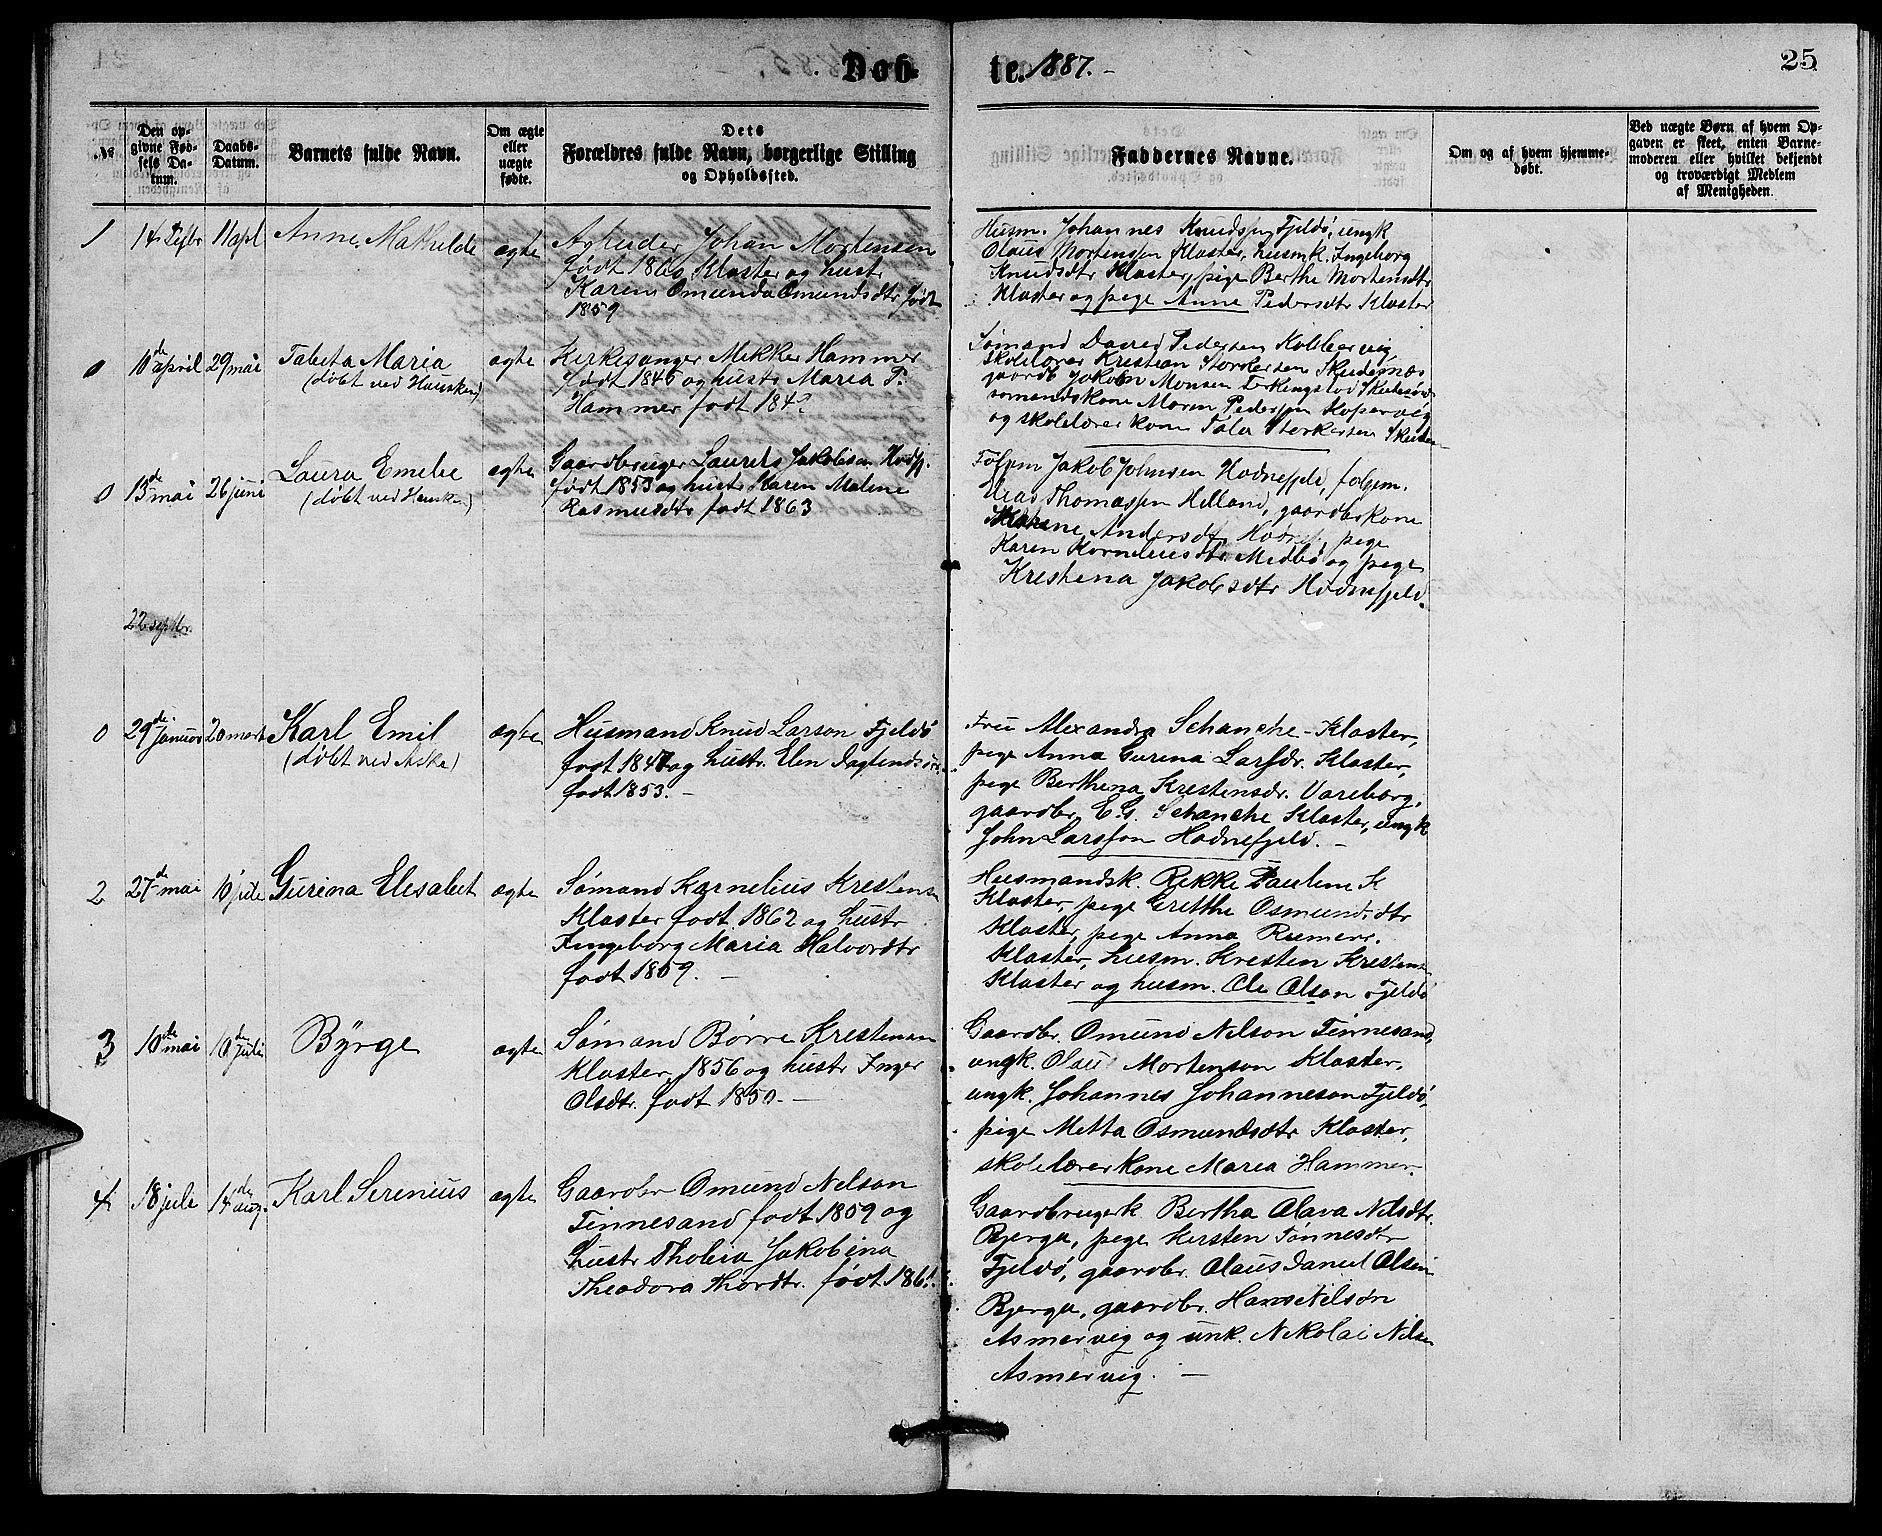 Døb-
te. 1887. -
25
№
Den op-
givne Fød-
sels Da-
tum.
Daabs-
Datum.
Barnets fulde Navn.
Om ægte
eller
uægte
fødte.
Dets
Forældres fulde Navn, borgerlige Stilling
og Opholdssted.
Faddernes Navne.
Om og af hvem hjemme-
døbt.
Ved uægte Børn af hvem Op-
gaven er skeet, enten Barne-
moderen eller hvilket bekjendt
og troværdigt Medlem
af Menigheden.
1
11 apl
Anne Mathilde
ægte
Johan Mortensen
født 1860, Kloster og hustr
Karen Omunda Omundsdtr født
1859
Husm. Johannes Knudssen Fjeldö, ungk
Olaus Mortenssen Kloster, husmk. Ingeborg
Knudsdtr Kloster, pige Berthe Mortensdtr
Kloster og pige Anne Pedersdtr Kloster
0
10de april
29 mai
Tabeta Maria
(döbt ved Hausken)
ægte
Kirkesanger Mikkel Hammer
født 1845 og hustr Maria P.
Hammer født 184
Sømand David Pedersen
skolelærer Kristian Storkersen Skudesnæs
gaardb Jakob Monsen
sømandskone Maren Pedersen Kopervig
og skolelærerkone Storkersen
0
15de mai
26 juni
Laura Emelie
(döbt ved Hausken)
ægte
Gaardbruger Laurits Jakobsen Hodf.
født 1853 og hustr Karen Maline
Rasmusdtr født 1863
Jakob Johnsen Hodnefjeld,
Elias Thomassen Helland, gaardbskone
Andersdtr pige
Karen Korneliusdtr. Medbø og pige
Kristena Jakobsdtr Hodnefjeld.
22 septbr.
0
29de Januar
20 mart
Karl Emil
(döbt ved Aske)
ægte
Husmand Knud Larson Fjeldö
født 1847 og hustr. Elen
født 1853. -
Fru Alexandra Schanche - Kloster,
pige Anna Gurina Larsdr. Kloster,
pige Berthena Kristensdr. Vareberg,
gaardbr. E. G. Schanche Kloster, ungk
John Larsson Hodnefjeld. -
2
27de mai
10 jule
Gurina Elesabet
ægte
Sömand Kornelius Kristens
Kloster født 1862 og hustr
Ingeborg Maria Halvordtr
født 1859. -
Husmandsk. Rikke Pauline K
Kloster, pige Grethe Osmundsdtr
Kloster, pige Anna
Kloster, husm. Kresten Krestens
Kloster og husm. Ole Olson Fjeldö
3
10de mai
10de juli
Byrge
ægte
Sömand Börre Krestensen
Kloster, 1856 og hustr Inger
Olsdtr. født 1850. -
Gaardbr. Omund Nelson Tinnesand,
ungk. Mortenson Kloster,
ungk. Johannes Johanneson Fjeldö,
pige Metta Osmundsdtr Kloster,
skolelærerkone Marea Hammer.
4
18 jule
14de aug.
Karl Serenius
ægte
Gaardbr Omund Nelson
Tinnesand født 1859 og
hustr Jakobina
Theodora født 186
Gaardbrugerk. Bertha Olava Nilsdtr.
Bjerga, pige Kirsten Tønnesdtr
Fjeldö, gaardbr. Olaus Daniel Olsen
Bjerga, gaardbr. Hans Nilson
Asmervig og unk. Nikolai Nilsen
Asmervig. -